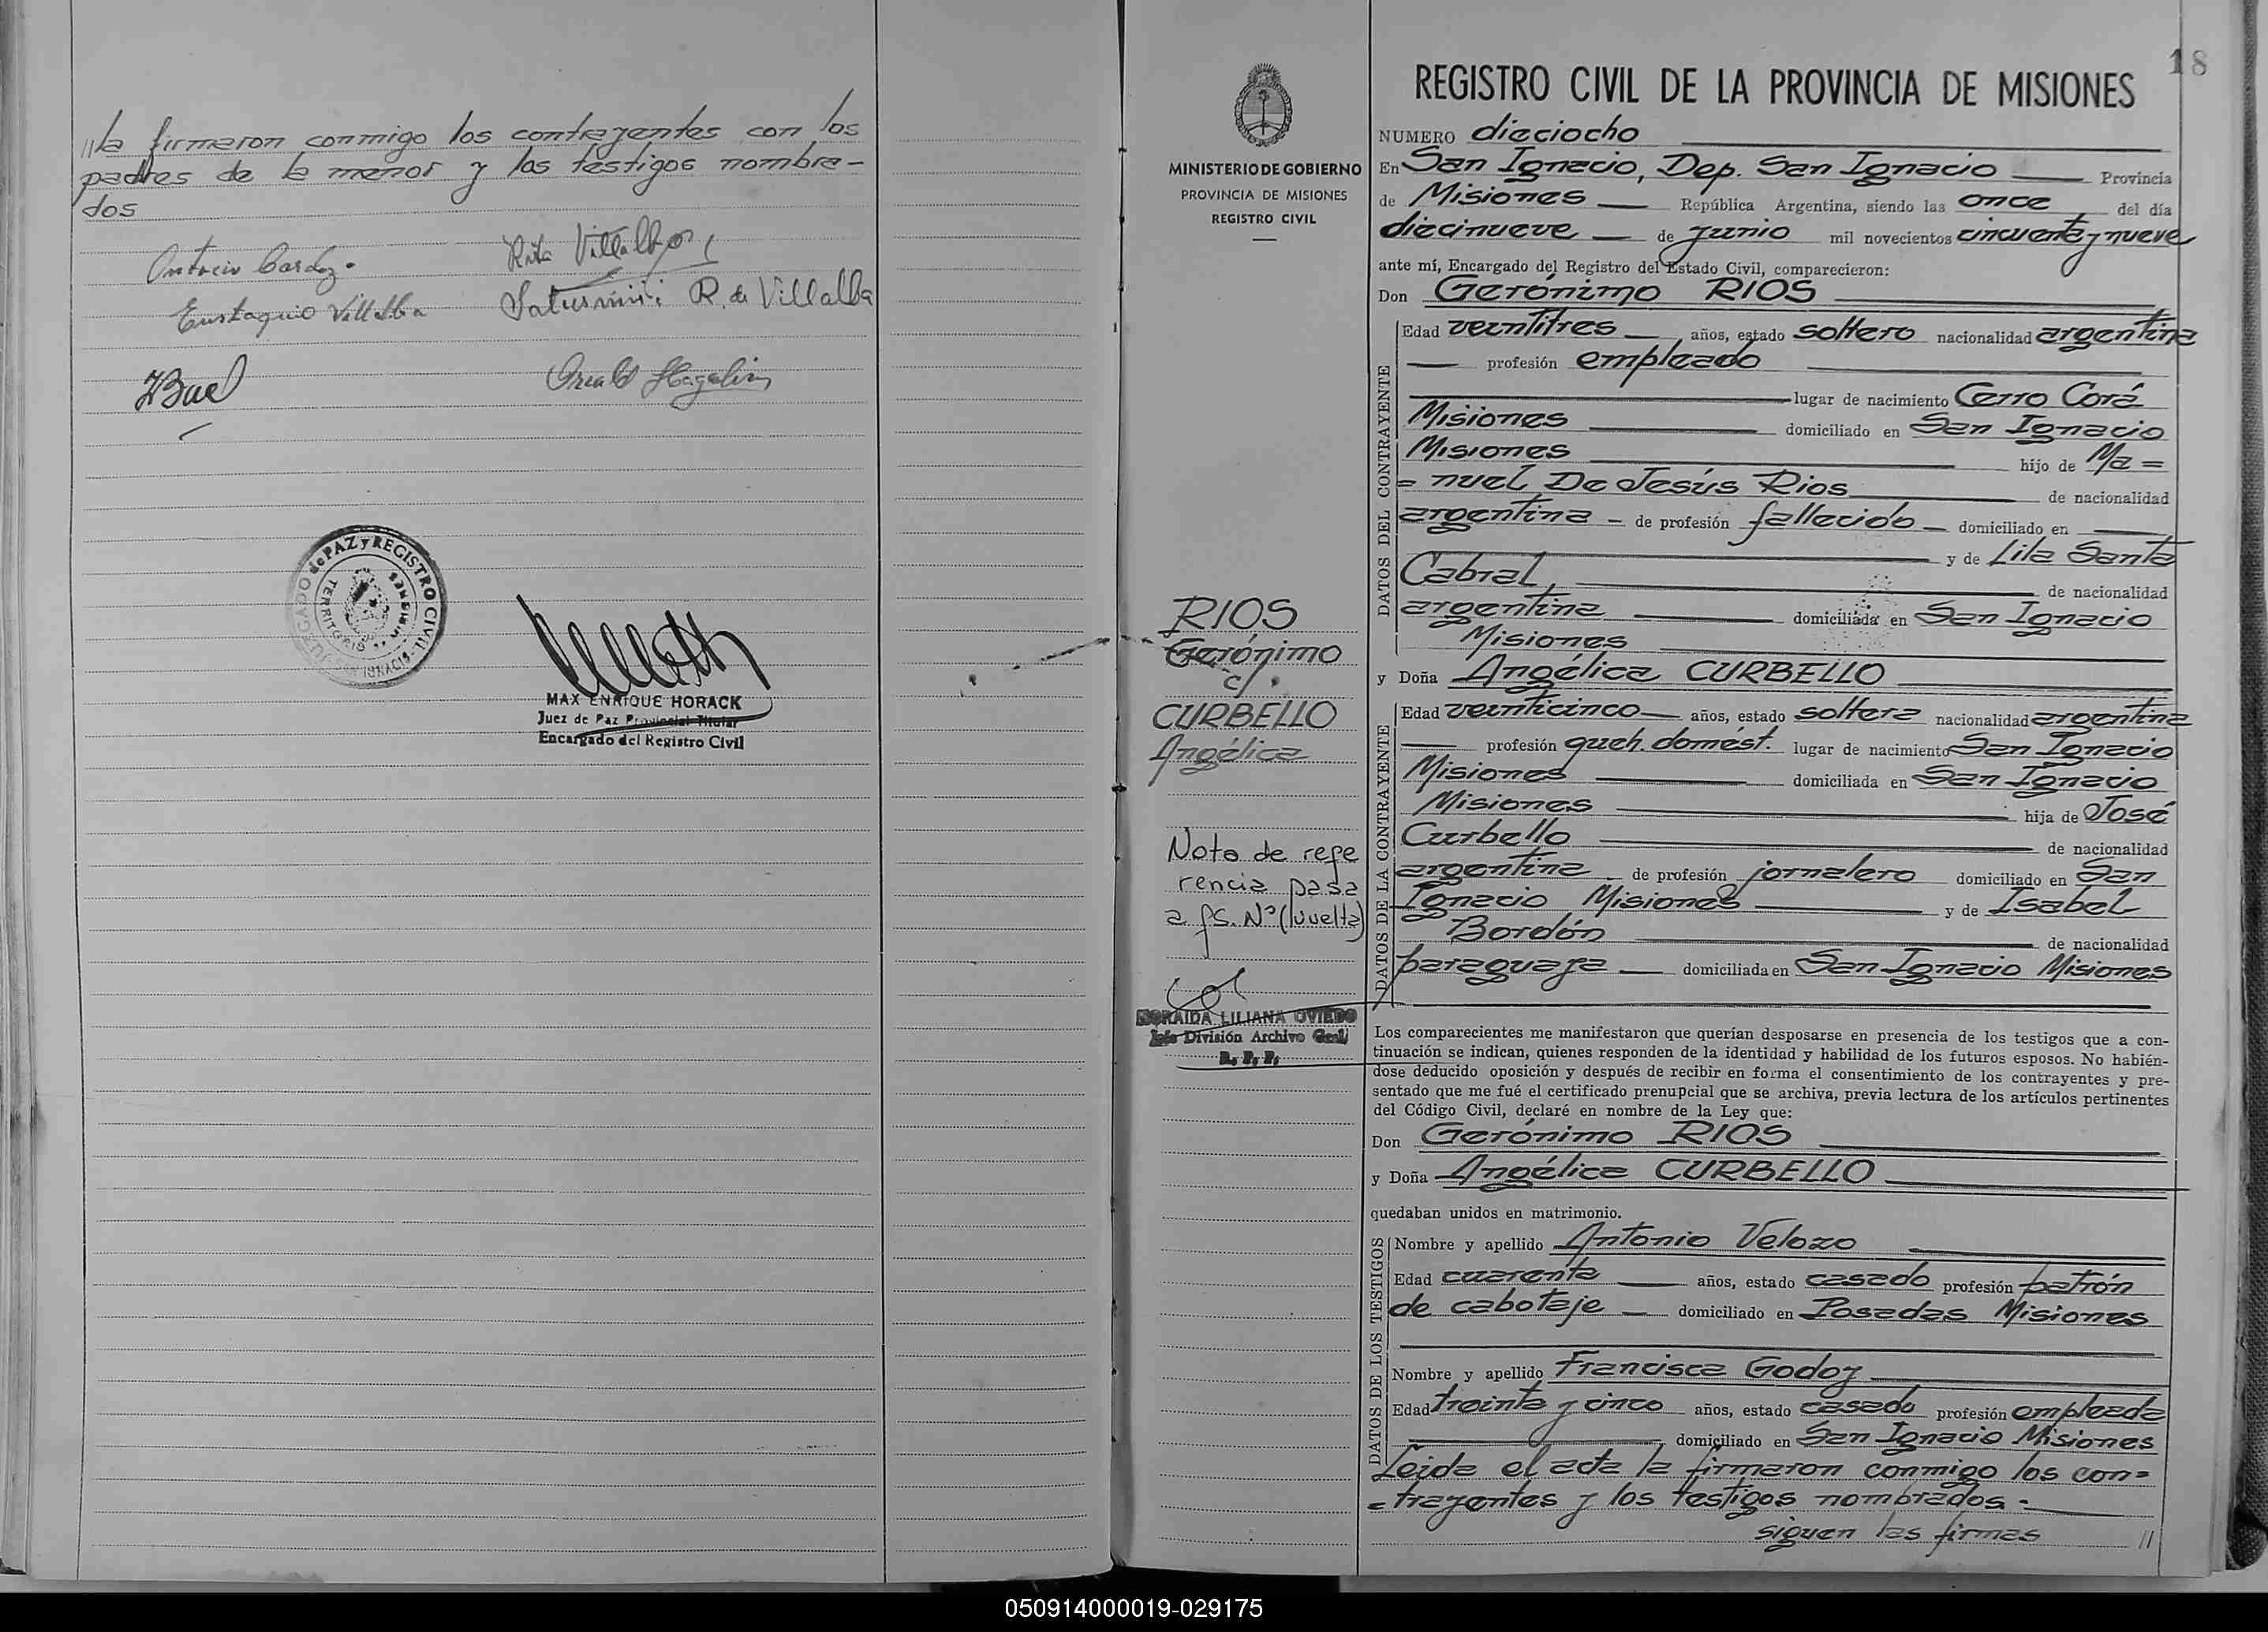 //la firmaron conmigo los contrayentes con los
padres de la menor y los testigos nombra-
dos
Rita Villalba
Eustaquio Villalba
R. de Villalba
de PAZ y REGISTRO CIVIL
MAX ENRIQUE HORACK
Juez de Paz Provincial Titular
Encargado del Registro Civil
18
MINISTERIO DE GOBIERNO
PROVINCIA DE MISIONES
REGISTRO CIVIL
RIOS
Gerónimo
c/.
CURBELLO
Angélica
Nota de refe
rencia pasa
a fs. Nº (vuelta)
LILIANA OVIEDO
Jefe División Archivo Gral
R. P. P.
REGISTRO CIVIL DE LA PROVINCIA DE MISIONES
NUMERO dieciocho
En San Ignacio, Dep. San Ignacio Provincia
de Misiones República Argentina, siendo las once del día
diecinueve de junio mil novecientos cincuenta y nueve
ante mí, Encargado del Registro del Estado Civil, comparecieron:
Don Gerónimo RIOS
DATOS DEL CONTRAYENTE
Edad veintitres años, estado soltero nacionalidad argentina
profesión empleado
lugar de nacimiento Cerro Corá
Misiones domiciliado en San Ignacio
Misiones hijo de Ma=
=nuel De Jesús Rios de nacionalidad
argentina - de profesión fallecido domiciliado en
y de Lila Santa
Cabral, de nacionalidad
argentina domiciliada en San Ignacio
Misiones
y Doña Angélica CURBELLO
DATOS DE LA CONTRAYENTE
Edad veinticinco años, estado soltera nacionalidad argentina
profesión queh. domést. lugar de nacimiento San Ignacio
Misiones domiciliada en San Ignacio
Misiones hija de José
Curbello de nacionalidad
argentina de profesión jornalero domiciliado en San
Ignacio Misiones y de Isabel
Bordón de nacionalidad
paraguaya domiciliada en San Ignacio Misiones
Los comparecientes me manifestaron que querían desposarse en presencia de los testigos que a con-
tinuación se indican, quienes responden de la identidad y habilidad de los futuros esposos. No habién-
dose deducido oposición y después de recibir en forma el consentimiento de los contrayentes y pre-
sentado que me fué el certificado prenupcial que se archiva, previa lectura de los artículos pertinentes
del Código Civil, declaré en nombre de la Ley que:
Don Gerónimo RIOS
y Doña Angélica CURBELLO
quedaban unidos en matrimonio.
DATOS DE LOS TESTIGOS
Nombre y apellido Antonio Velozo
Edad cuarenta años, estado casado profesión patrón
de cabotaje domiciliado en Posadas Misiones
Nombre y apellido Francisca Godoy
Edad treinta y cinco años, estado casado profesión empleada
domiciliado en San Ignacio Misiones
Leida el acta la firmaron conmigo los con=
=trayentes y los testigos nombrados.-
siguen las firmas //
050914000019-029175